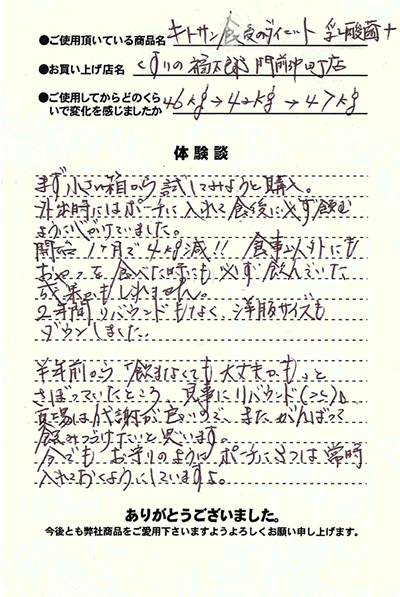 ●ご使用頂いている商品名 キトサン食後のダイエット 乳酸菌+
●お買い上げ店名 くすりの福太郎 門前仲町店
●ご使用してからどのくら
いで変化を感じましたか 46kg→42kg→47kg
体験談
まず小さい箱から試してみようと購入。
外出時にはポーチに入れて食後に必ず飲む
ように心がけていました。
開始1ヶ月で4kg減!! 食事以外にも
おやつを食べた時にも必ず飲んでいた
成果かもしれません。
2年間リバウンドもなく、洋服サイズも
ダウンしました。
半年前から「飲まなくても大丈夫かも」と
さぼっていたところ、見事にリバウンド(>_<)。
夏場は代謝が良いので、またがんばって
飲みつづけたいと思います。
今でもお守りのようにポーチに3つは常時
入れておくようにしていますよ。
ありがとうございました。
今後とも弊社商品をご愛用下さいますようよろしくお願い申し上げます。